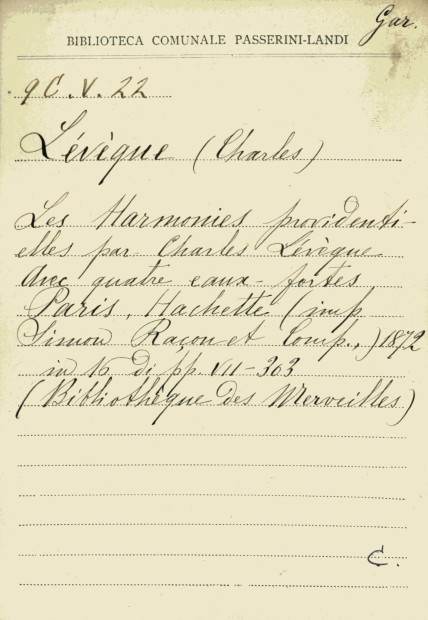 Gar.
BIBLIOTECA COMUNALE PASSERINI-LANDI
9 C. V. 22
Lévèque (Charles)
Les Harmonies providenti-
elles par Charles Lévèque.
Avec quatre eaux-fortes
Paris, Hachette (imp.
Simon Raçon et Comp.,) 1872
in 16 di pp. VII-363
(Bibliothèque des Merveilles)
C.